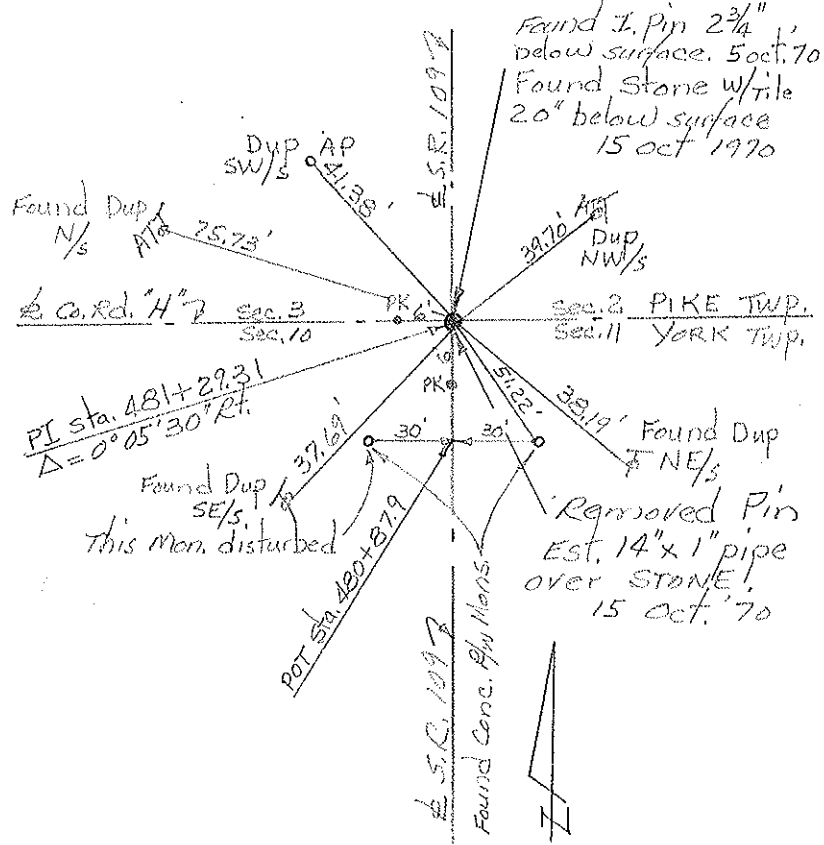 Found I. Pin 2 3/4"
below surface. 5 oct. '70
Found Stone W/Tile
20" below surface
15 oct 1970
℄ S.R. 109
Dup AP
SW/s
41.38'
Found Dup
N/s
75.73'
39.70'
Dup
NW/s
℄ Co. Rd. "H"
Sec. 3
Sec. 10
PK 6'
Sec. 2 PIKE TWP.
Sec. 11 YORK TWP.
PI Sta. 481+29.31
Δ = 0° 05' 30" Rt.
6'
PK
51.22'
38.19'
37.69'
30' 30'
Found Dup
NE/s
Found Dup
SE/s
This Mon. disturbed
Removed Pin
Est. 14" x 1" pipe
over STONE!
15 Oct. '70
POT Sta. 480+87.9
℄ S.R. 109
Found Conc. R/W Mons.